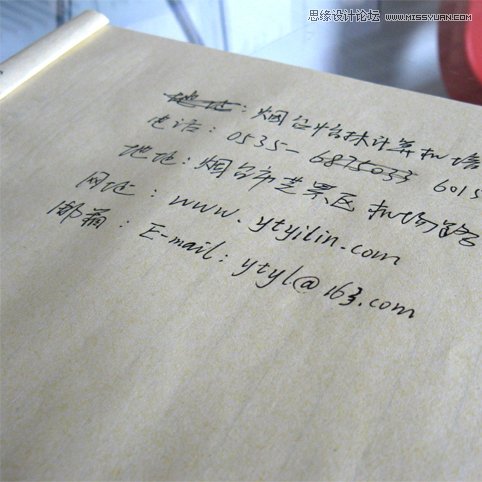 思缘设计论坛 WWW.MISSYUAN.COM
地址：烟台怡林计算机培
电话：0535-6875033 6015
地址：烟台市芝罘区机场路
网址：www.ytyilin.com
邮箱：E-mail：ytyl@163.com